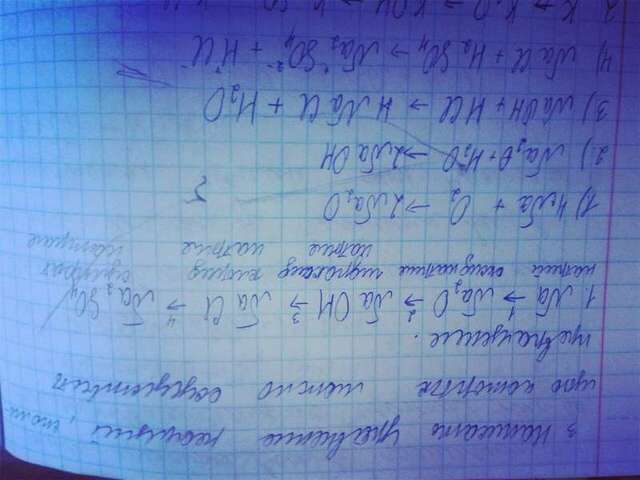 3 Написать уравнение реакций, с пом.
при которых можно осуществить
превращение.
1. Na →¹ Na₂O →² NaOH →³ NaCl →⁴ Na₂SO₄
натрий оксид натрия гидроксид хлорид сульфат
натрия натрия натрия
1) 4Na + O₂ → 2Na₂O
2) Na₂O + H₂O → 2NaOH
3) NaOH + HCl → NaCl + H₂O
4) NaCl + H₂SO₄ → Na₂SO₄ + HCl
2. K → K₂O → KOH → K